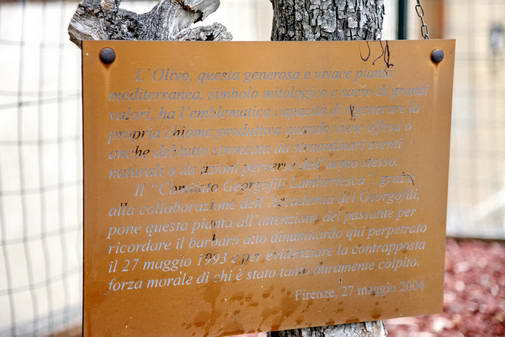 L'Olivo, questa generosa e vivace pianta
mediterranea, simbolo mitologico e sacro di grandi
valori, ha l'emblematica capacità di rigenerare la
propria chioma produttiva quando viene offesa o
anche del tutto stroncata da straordinari eventi
naturali o da azioni perverse dell'uomo stesso.
Il "Comitato Georgofili Lambertesca" grazie
alla collaborazione dell'Accademia dei Georgofili,
pone questa pianta all'attenzione del passante per
ricordare il barbaro atto dinamitardo qui perpetrato
il 27 maggio 1993 e per evidenziare la contrapposta
forza morale di chi è stato tanto duramente colpito.
Firenze, 27 maggio 2004